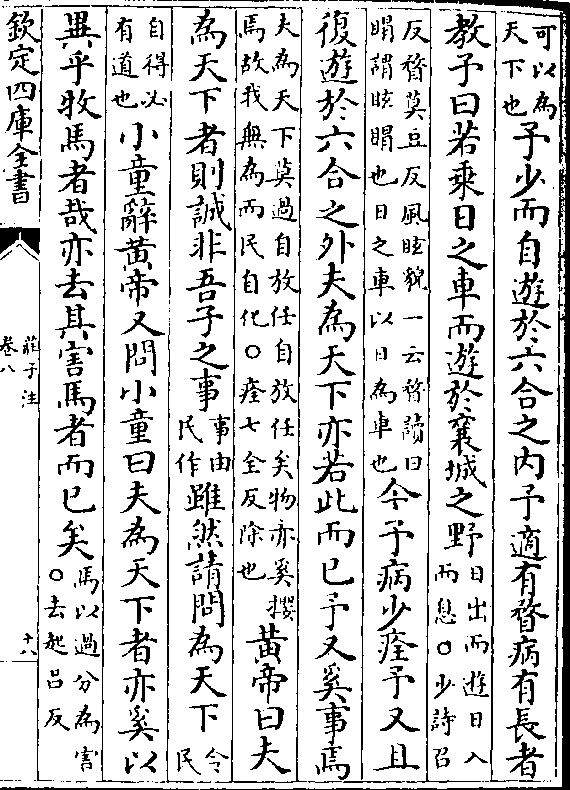 可以為天下也予少而自遊於六合之內予適有瞀病有長者
教予曰若乘日之車而遊於襄城之野日出而遊日入而息○少詩召
反瞀莫豆反風眩貌一云瞀讀曰瞑謂眩瞑也日之車以日為車也今予病少痊予又且
復遊於六合之外夫為天下亦若此而已予又奚事焉
夫為天下莫過自放任自放任矣物亦奚攖焉故我無為而民自化○痊七全反除也黄帝曰夫
為天下者則誠非吾子之事事由民作雖然請問為天下令民
自得必有道也小童辭黄帝又問小童曰夫為天下者亦奚以
異乎牧馬者哉亦去其害馬者而已矣馬以過分為害○去起吕反
欽定四庫全書
莊子注
卷八
十八